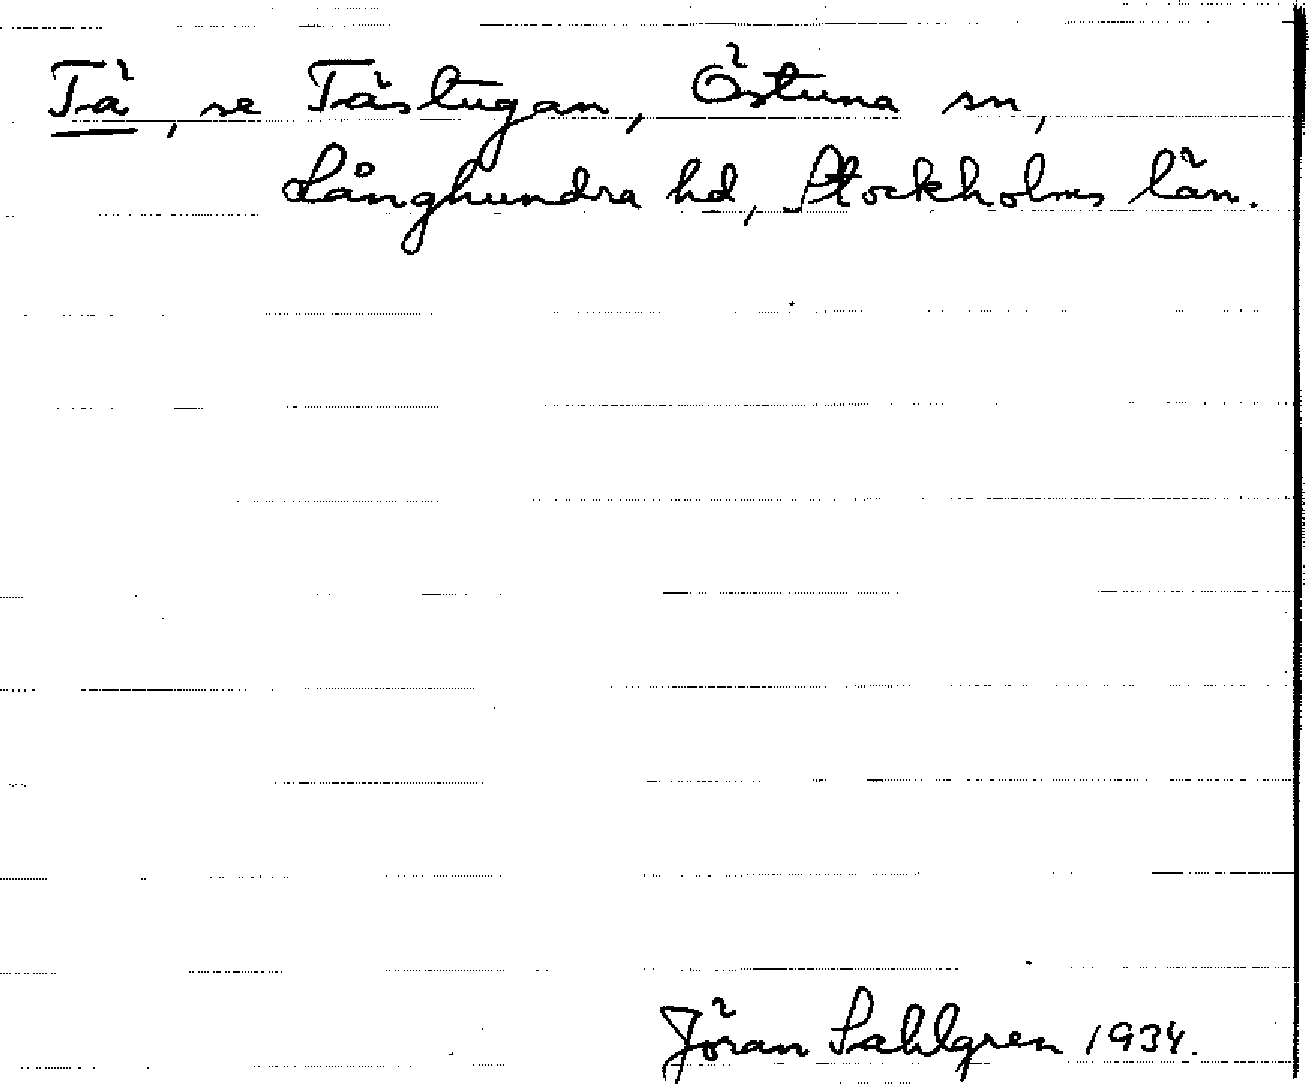 Tä, se Tästugan, Östuna sn,
Långhundra hd, Stockholms län.
Jöran Sahlgren 1934.